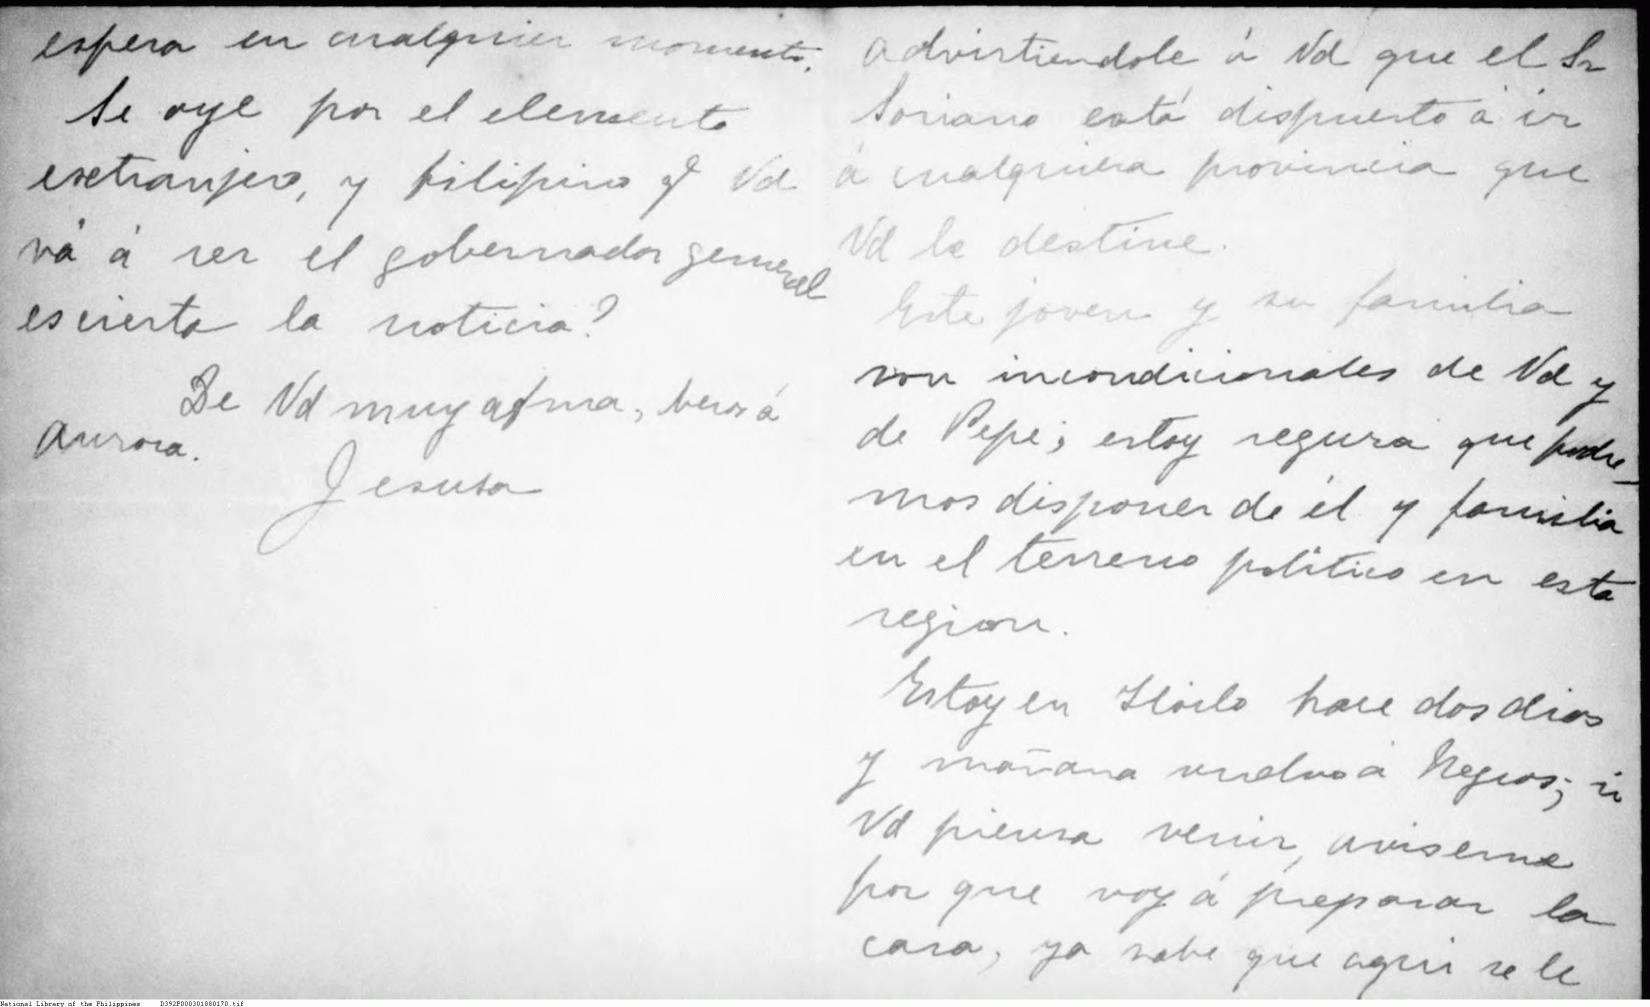 advirtiendole á Vd que el Sr
Soriano está dispuesto á ir
á cualquiera provincia que
Vd le destine.
Este joven y su familia
son incondicionales de Vd y
de Pepe; estoy segura que podre-
mos disponer de él y familia
en el terreno politico en esta
region.
Estoy en Iloilo hace dos dias
y mañana vuelvo á Negros; si
Vd piensa venir, aviseme
por que voy á preparar la
casa, ya sabe que aqui se le
espera en cualquier momento.
Se oye por el elemento
extranjero, y filipino q̃ Vd
vá á ser el gobernador general
es cierta la noticia?
De Vd muy afma, besos á
Aurora.
Jesusa
National Library of the Philippines D392P000301880170.tif